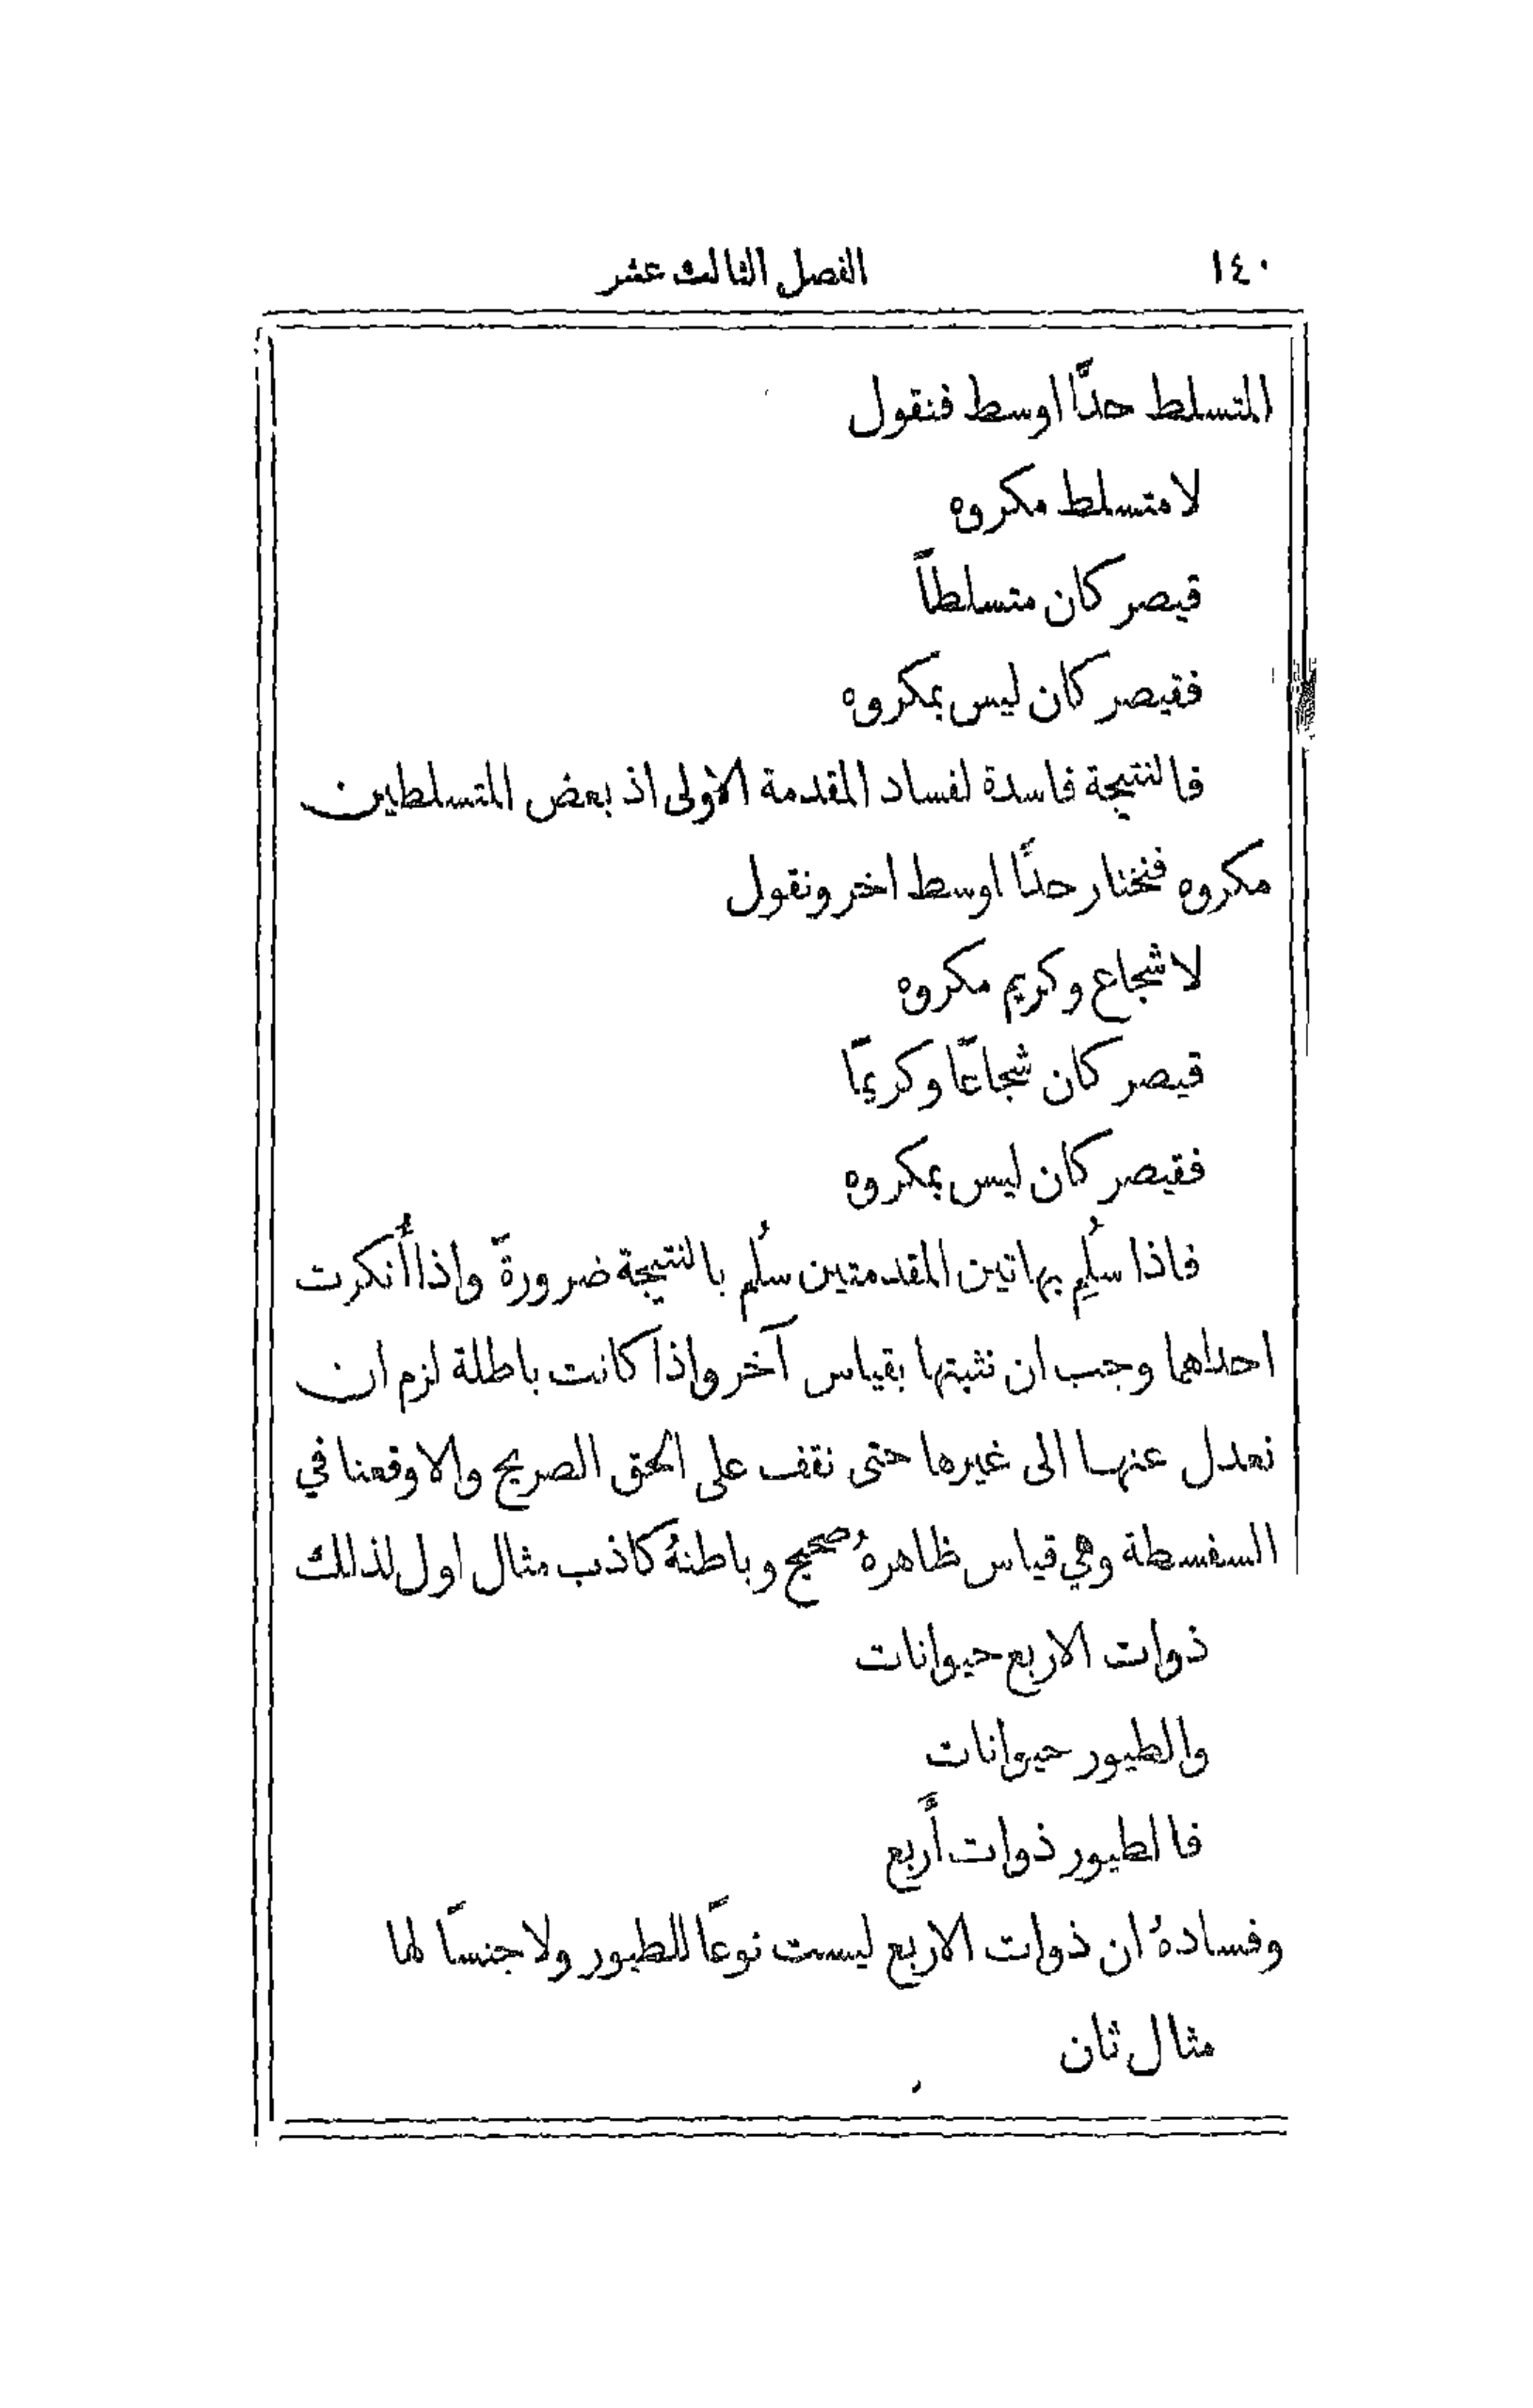 ١٤٠ الفصل الثالث عشر
المتسلط حدًّا اوسط فنقول
لا متسلط مكروه
قيصر كان متسلطاً
فقيصر كان ليس بمكروه
فالنتيجة فاسدة لفساد المقدمة الاولى اذ بعض المتسلطين
مكروه فنختار حدًّا اوسط اخر ونقول
لا شجاع وكريم مكروه
قيصر كان شجاعًا وكريمًا
فقيصر كان ليس بمكروه
فاذا سُلِم بهاتين المقدمتين سُلم بالنتيجة ضرورةً واذا أُنكرت
احداهما وجب ان نثبتها بقياس آخر واذا كانت باطلة لزم ان
نعدل عنها الى غيرها حتى نقف على الحق الصريح والا وقعنا في
السفسطة وهي قياس ظاهرهُ صحيح وباطنهُ كاذب مثال اول لذلك
ذوات الاربع حيوانات
والطيور حيوانات
فالطيور ذوات أَربع
وفسادهُ ان ذوات الاربع ليست نوعًا للطيور ولا جنسًا لها
مثال ثان